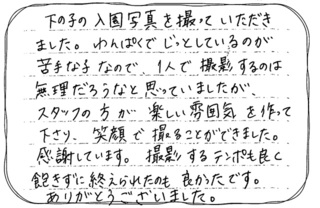 下の子の入園写真を撮っていただき
ました。わんぱくでじっとしているのが
苦手な子なので、1人で撮影するのは
無理だろうなと思っていましたが、
スタッフの方が楽しい雰囲気を作って
下さり、笑顔で撮ることができました。
感謝しています。撮影するテンポも良く
飽きずに終えられたのも良かったです。
ありがとうございました。